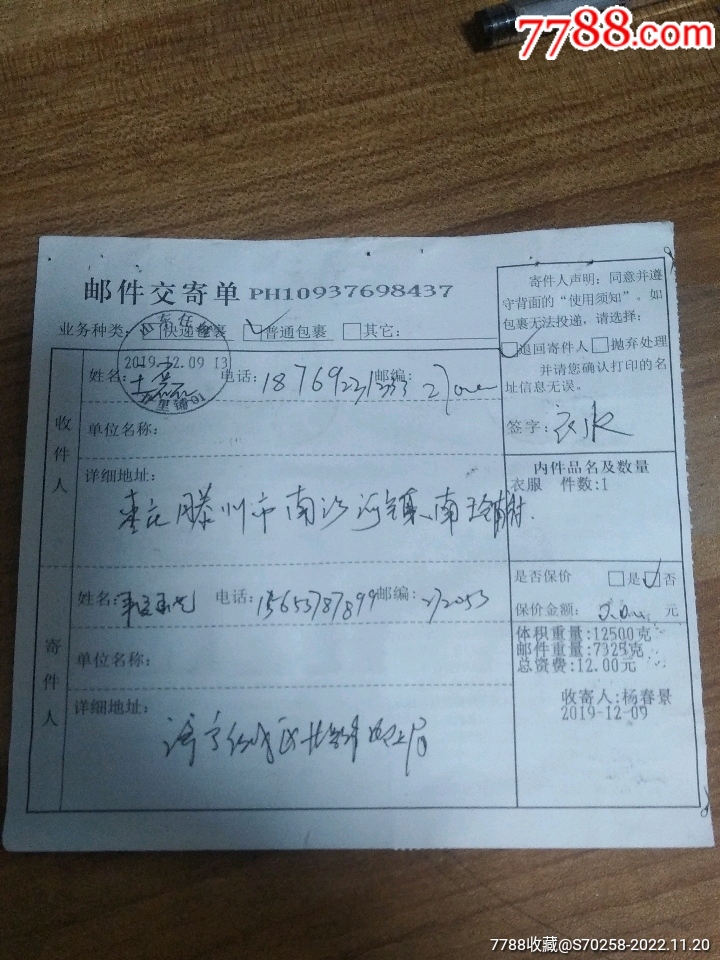 7788.com
邮件交寄单 PH10937698437
业务种类: 快递包裹 普通包裹 其它:
2019.12.09 13
里铺01
姓名: 电话: 邮编:
单位名称:
收件人
详细地址:
滕州市南沙河镇
姓名: 电话: 15653787899 邮编: 272053
单位名称:
寄件人
详细地址:
寄件人声明: 同意并遵
守背面的“使用须知”。如
包裹无法投递, 请选择:
退回寄件人 抛弃处理
并请您确认打印的名
址信息无误。
签字:
内件品名及数量
衣服 件数:1
是否保价 是 否
保价金额: 元
体积重量:12500克
邮件重量:7325克
总资费:12.00元
收寄人:杨春景
2019-12-09
7788收藏@S70258-2022.11.20